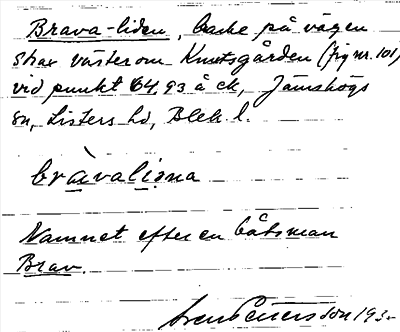 Brava-liden, backe på vägen
strax väster om Knutsgården (fig nr. 101)
vid punkt 64,93 å ek, Jämshögs
sn, Listers hd, Blek. l.
bràvalịɔna
Namnet efter en båtsman
Brav.
Sven Petersson 193-